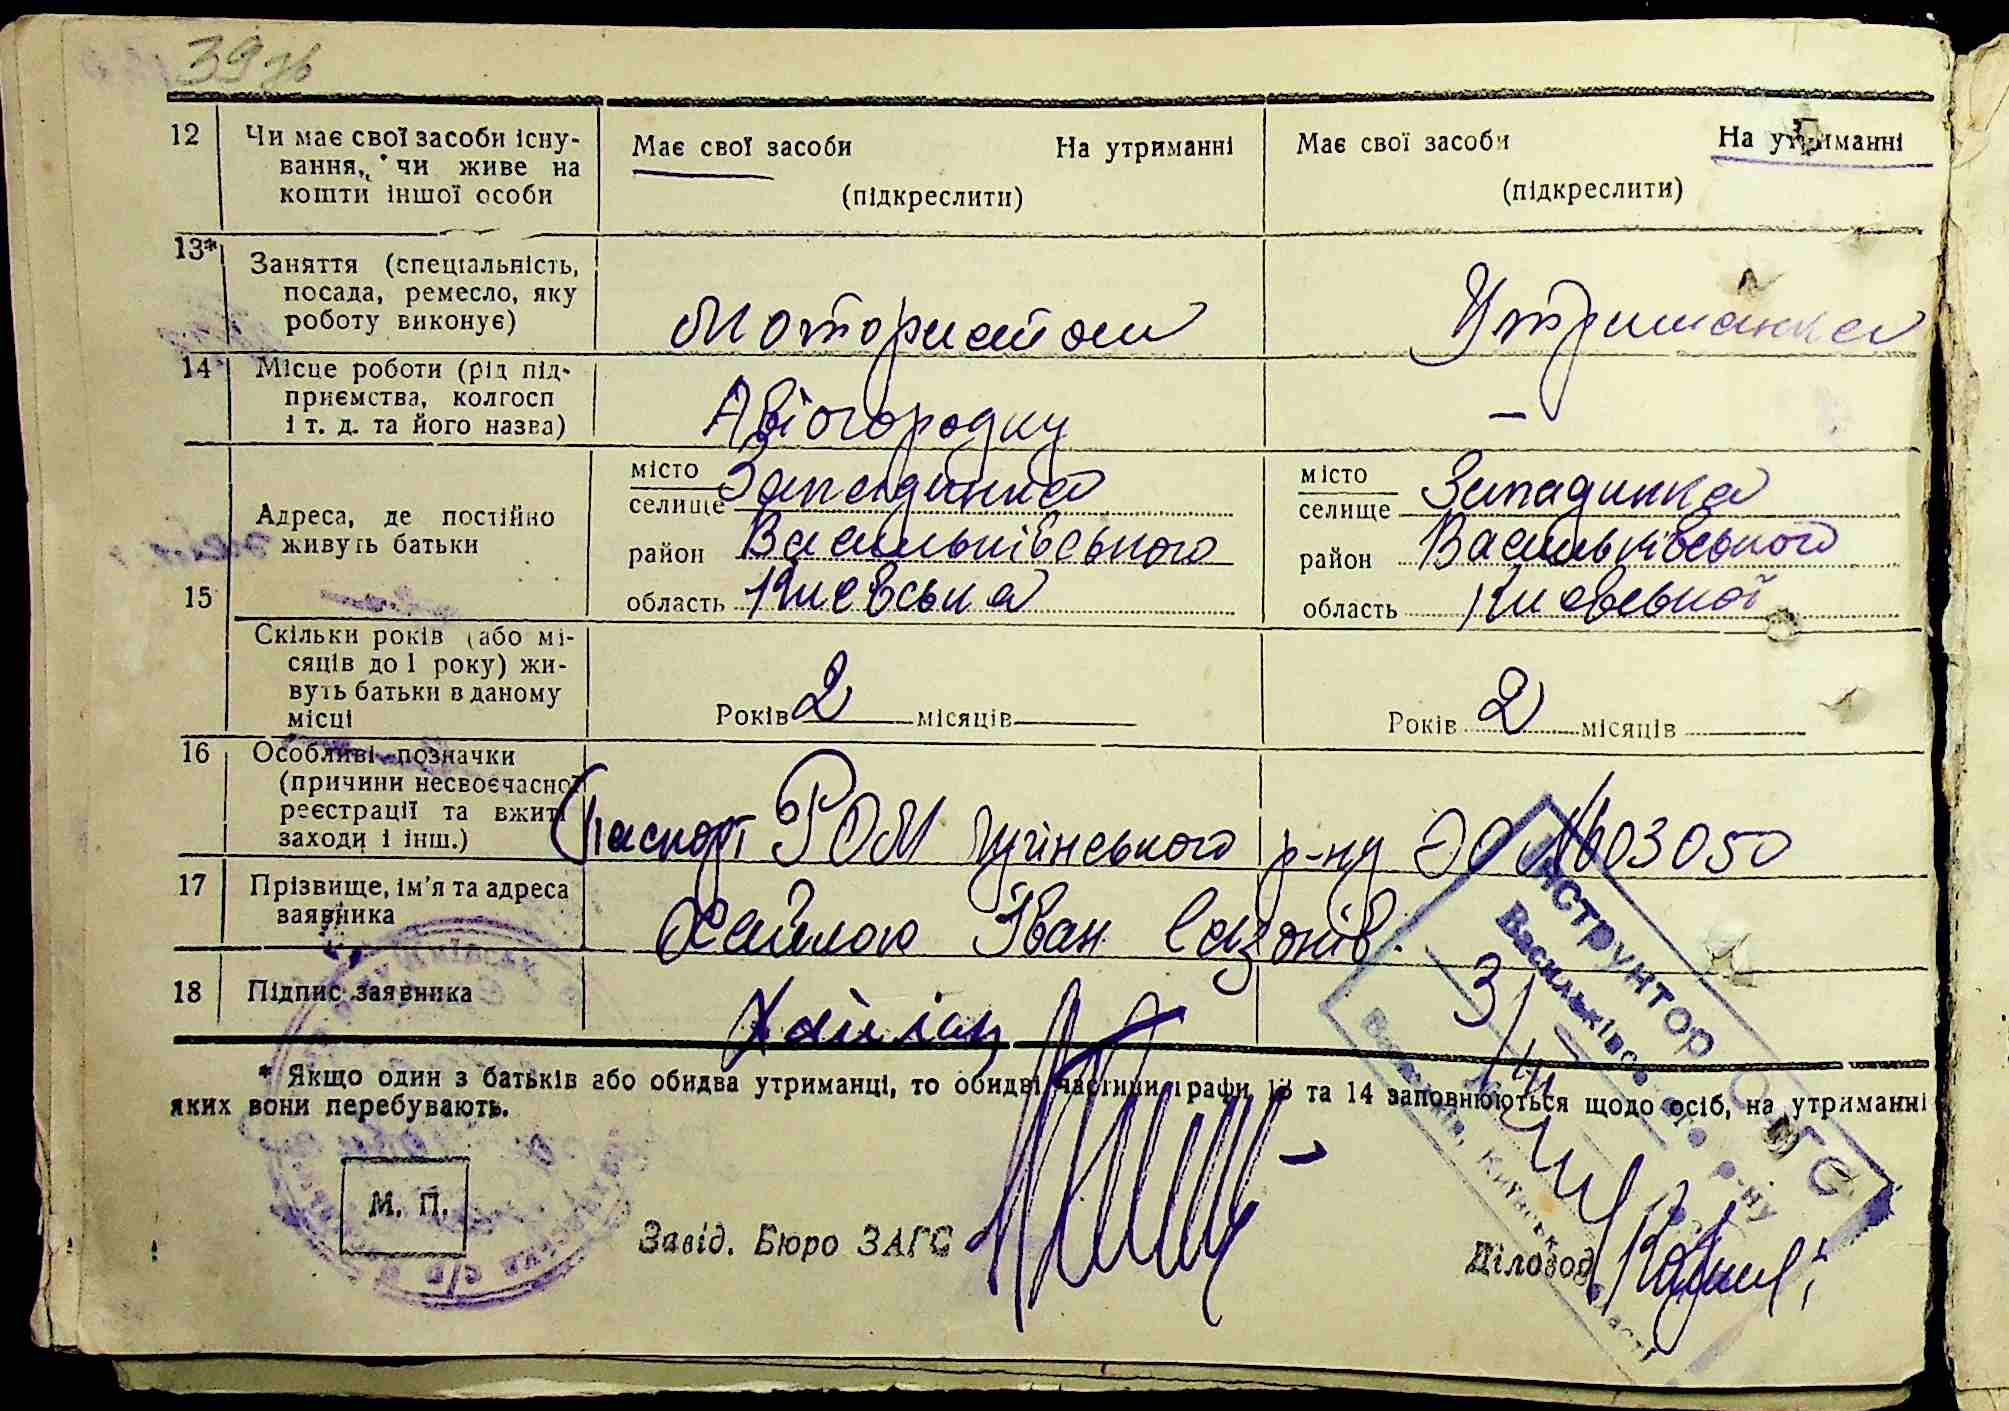 39 зв
12 Чи має свої засоби існу- Має свої засоби На утриманні Має свої засоби На утриманні
вання, чи живе на
кошти іншої особи (підкреслити) (підкреслити)
13* Заняття (спеціальність,
посада, ремесло, яку
роботу виконує) Мотористом Утриманка
14 Місце роботи (рід під-
приємства, колгосп
і т. д. та його назва) Авіогородку —
15 Адреса, де постійно
живуть батьки
місто Западинка місто Западинка
селище селище
район Васильківського район Васильківського
область Киевська область Киевської
Скільки років (або мі-
сяців до 1 року) жи-
вуть батьки в даному
місці Років 2 місяців Років 2 місяців
16 Особливі позначки
(причини несвоєчасної
реєстрації та вжиті
заходи і інш.) Паспорт РОМ р-ну №603050
17 Прізвище, ім'я та адреса
заявника Хайлою Іван Сазонів.
18 Підпис заявника
* Якщо один з батьків або обидва утриманці, то обидві частини графи 13 та 14 заповнюються щодо осіб, на утриманні
яких вони перебувають.
М. П.
Завід. Бюро ЗАГС
Діловод
Інструктор ЗАГС
Васильківського р-ну